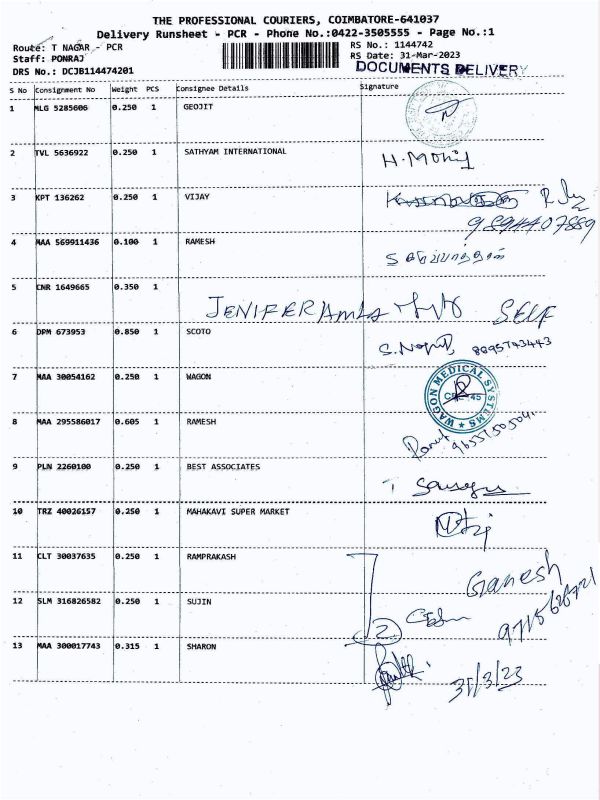 THE PROFESSIONAL COURIERS, COIMBATORE-641037
Delivery Runsheet - PCR - Phone No.:0422-3505555 - Page No.:1
Route: T NAGAR - PCR RS No.: 1144742
Staff: PONRAJ RS Date: 31-Mar-2023
DRS No.: DCJB114474201 DOCUMENTS DELIVERY
S No Consignment No Weight PCS Consignee Details Signature
1 MLG 5285606 0.250 1 GEOJIT
2 TVL 5636922 0.250 1 SATHYAM INTERNATIONAL H.Mohij
3 KPT 136262 0.250 1 VIJAY
9894407889
4 MAA 569911436 0.100 1 RAMESH
5 CNR 1649665 0.350 1
JENIFER SELF
6 DPM 673953 0.850 1 SCOTO 8895743443
7 MAA 30054162 0.250 1 WAGON WAGON MEDICAL SYSTEMS
8 MAA 295586017 0.605 1 RAMESH
9 PLN 2260100 0.250 1 BEST ASSOCIATES
10 TRZ 40026157 0.250 1 MAHAKAVI SUPER MARKET
11 CLT 30037635 0.250 1 RAMPRAKASH Ganesh
12 SLM 316826582 0.250 1 SUJIN
2
13 MAA 300017743 0.315 1 SHARON
31/3/23